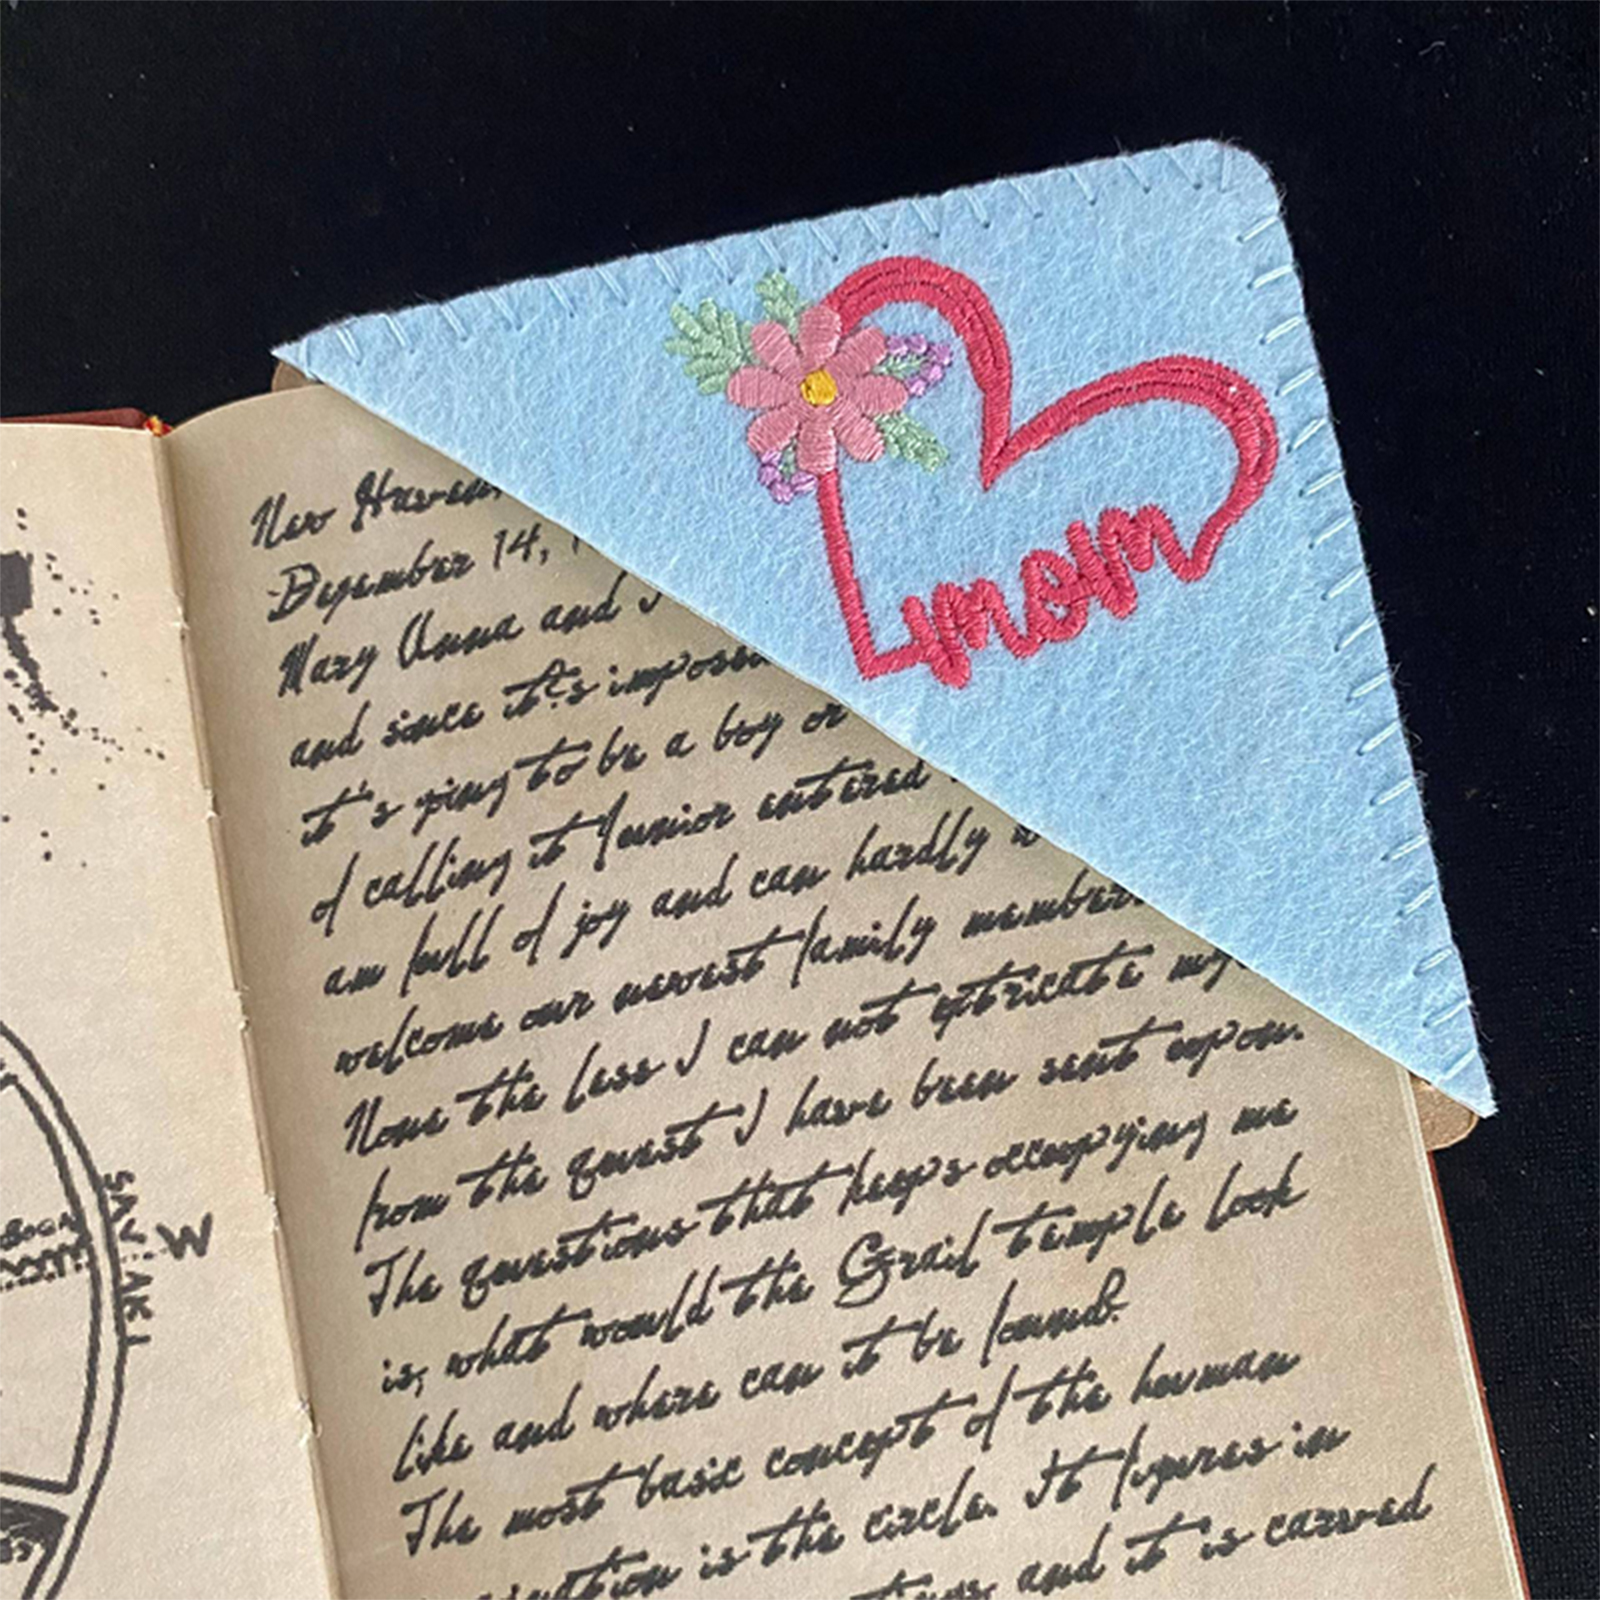 mom
New Haven,
December 14, 1
Mary Anna and I
and since it's imposs
it's going to be a boy or
of calling it Junior entered
am full of joy and can hardly w
welcome our newest family member
None the less I can not extricate my
from the quest I have been sent upon.
The questions that keeps occupying me
is, what would the Grail temple look
like and where can it be found?
The most basic concept of the human
is the circle. It figures in
and it is carved
W